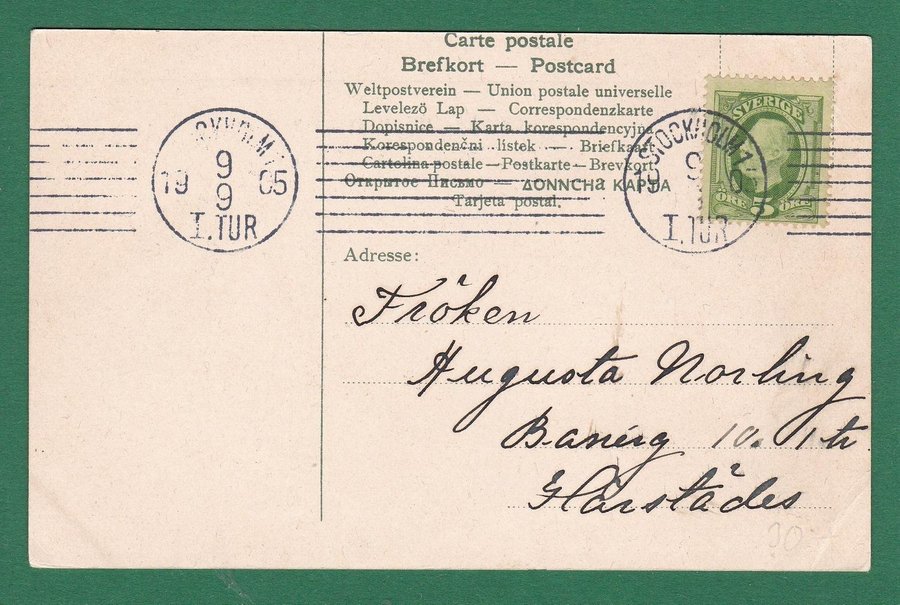 Carte postale
Brefkort — Postcard
Weltpostverein — Union postale universelle
Levelező Lap — Correspondenzkarte
Dopisnice — Karta korespondencyjna
Korespondenčni listek — Briefkaart
Cartolina postale — Postkarte — Brevkort
Открытое Письмо — ДОПИСНА КАРТА
Tarjeta postal.
STOCKHOLM 1
9
19 05
9
I. TUR
STOCKHOLM 1
9
19 0
I. TUR
SVERIGE
ÖRE 5 ÖRE
Adresse:
Fröken
Augusta Norling
Banérg 10. 1 tr
Härstädes